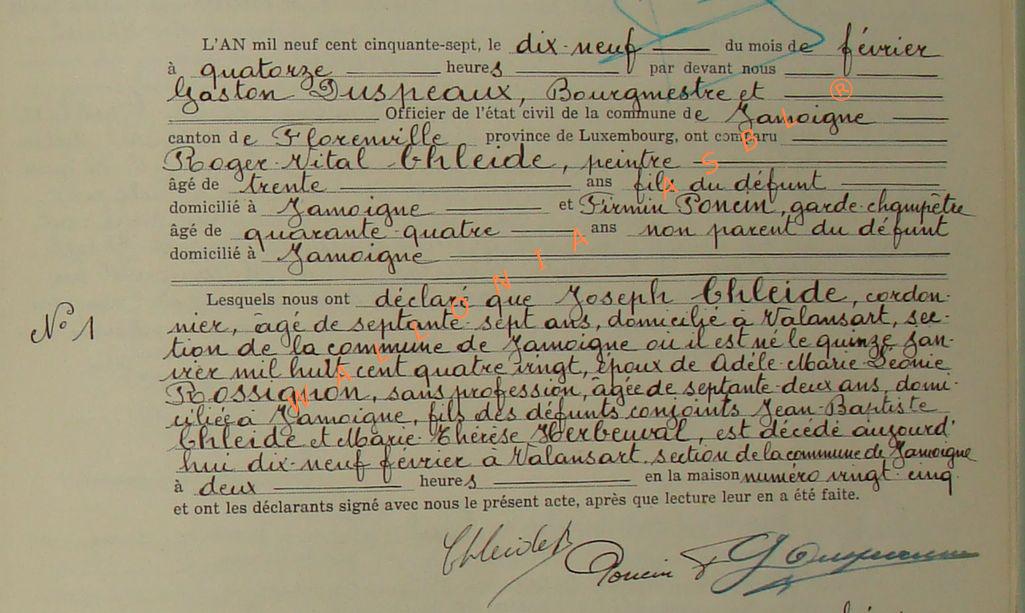 L'AN mil neuf cent cinquante-sept, le dix-neuf du mois de février
à quatorze heures par devant nous
Gaston Duspeaux, Bourgmestre et
Officier de l'état civil de la commune de Jamoigne
canton de Florenville province de Luxembourg, ont comparu
Roger-Vital Chleide, peintre
âgé de trente ans fils du défunt
domicilié à Jamoigne et Firmin Poncin, garde-champêtre
âgé de quarante-quatre ans non parent du défunt
domicilié à Jamoigne
Lesquels nous ont déclaré que Joseph Chleide, cordon-
nier, âgé de septante-sept ans, domicilié à Valansart, sec-
tion de la commune de Jamoigne ou il est né le quinze jan-
vier mil huit cent quatre vingt, époux de Adèle-Marie-Léonie
Rossignon, sans profession, âgée de septante-deux ans, domi-
ciliée à Jamoigne, fils des défunts conjoints Jean-Baptiste
Chleide et Marie-Thérèse Herbeuval, est décédé aujourd'
hui dix-neuf février à Valansart, section de la commune de Jamoigne
N° 1
à deux heures en la maison numéro vingt-cinq
et ont les déclarants signé avec nous le présent acte, après que lecture leur en a été faite.
Chleide R Poncin F
WALLONIA ASBL ®